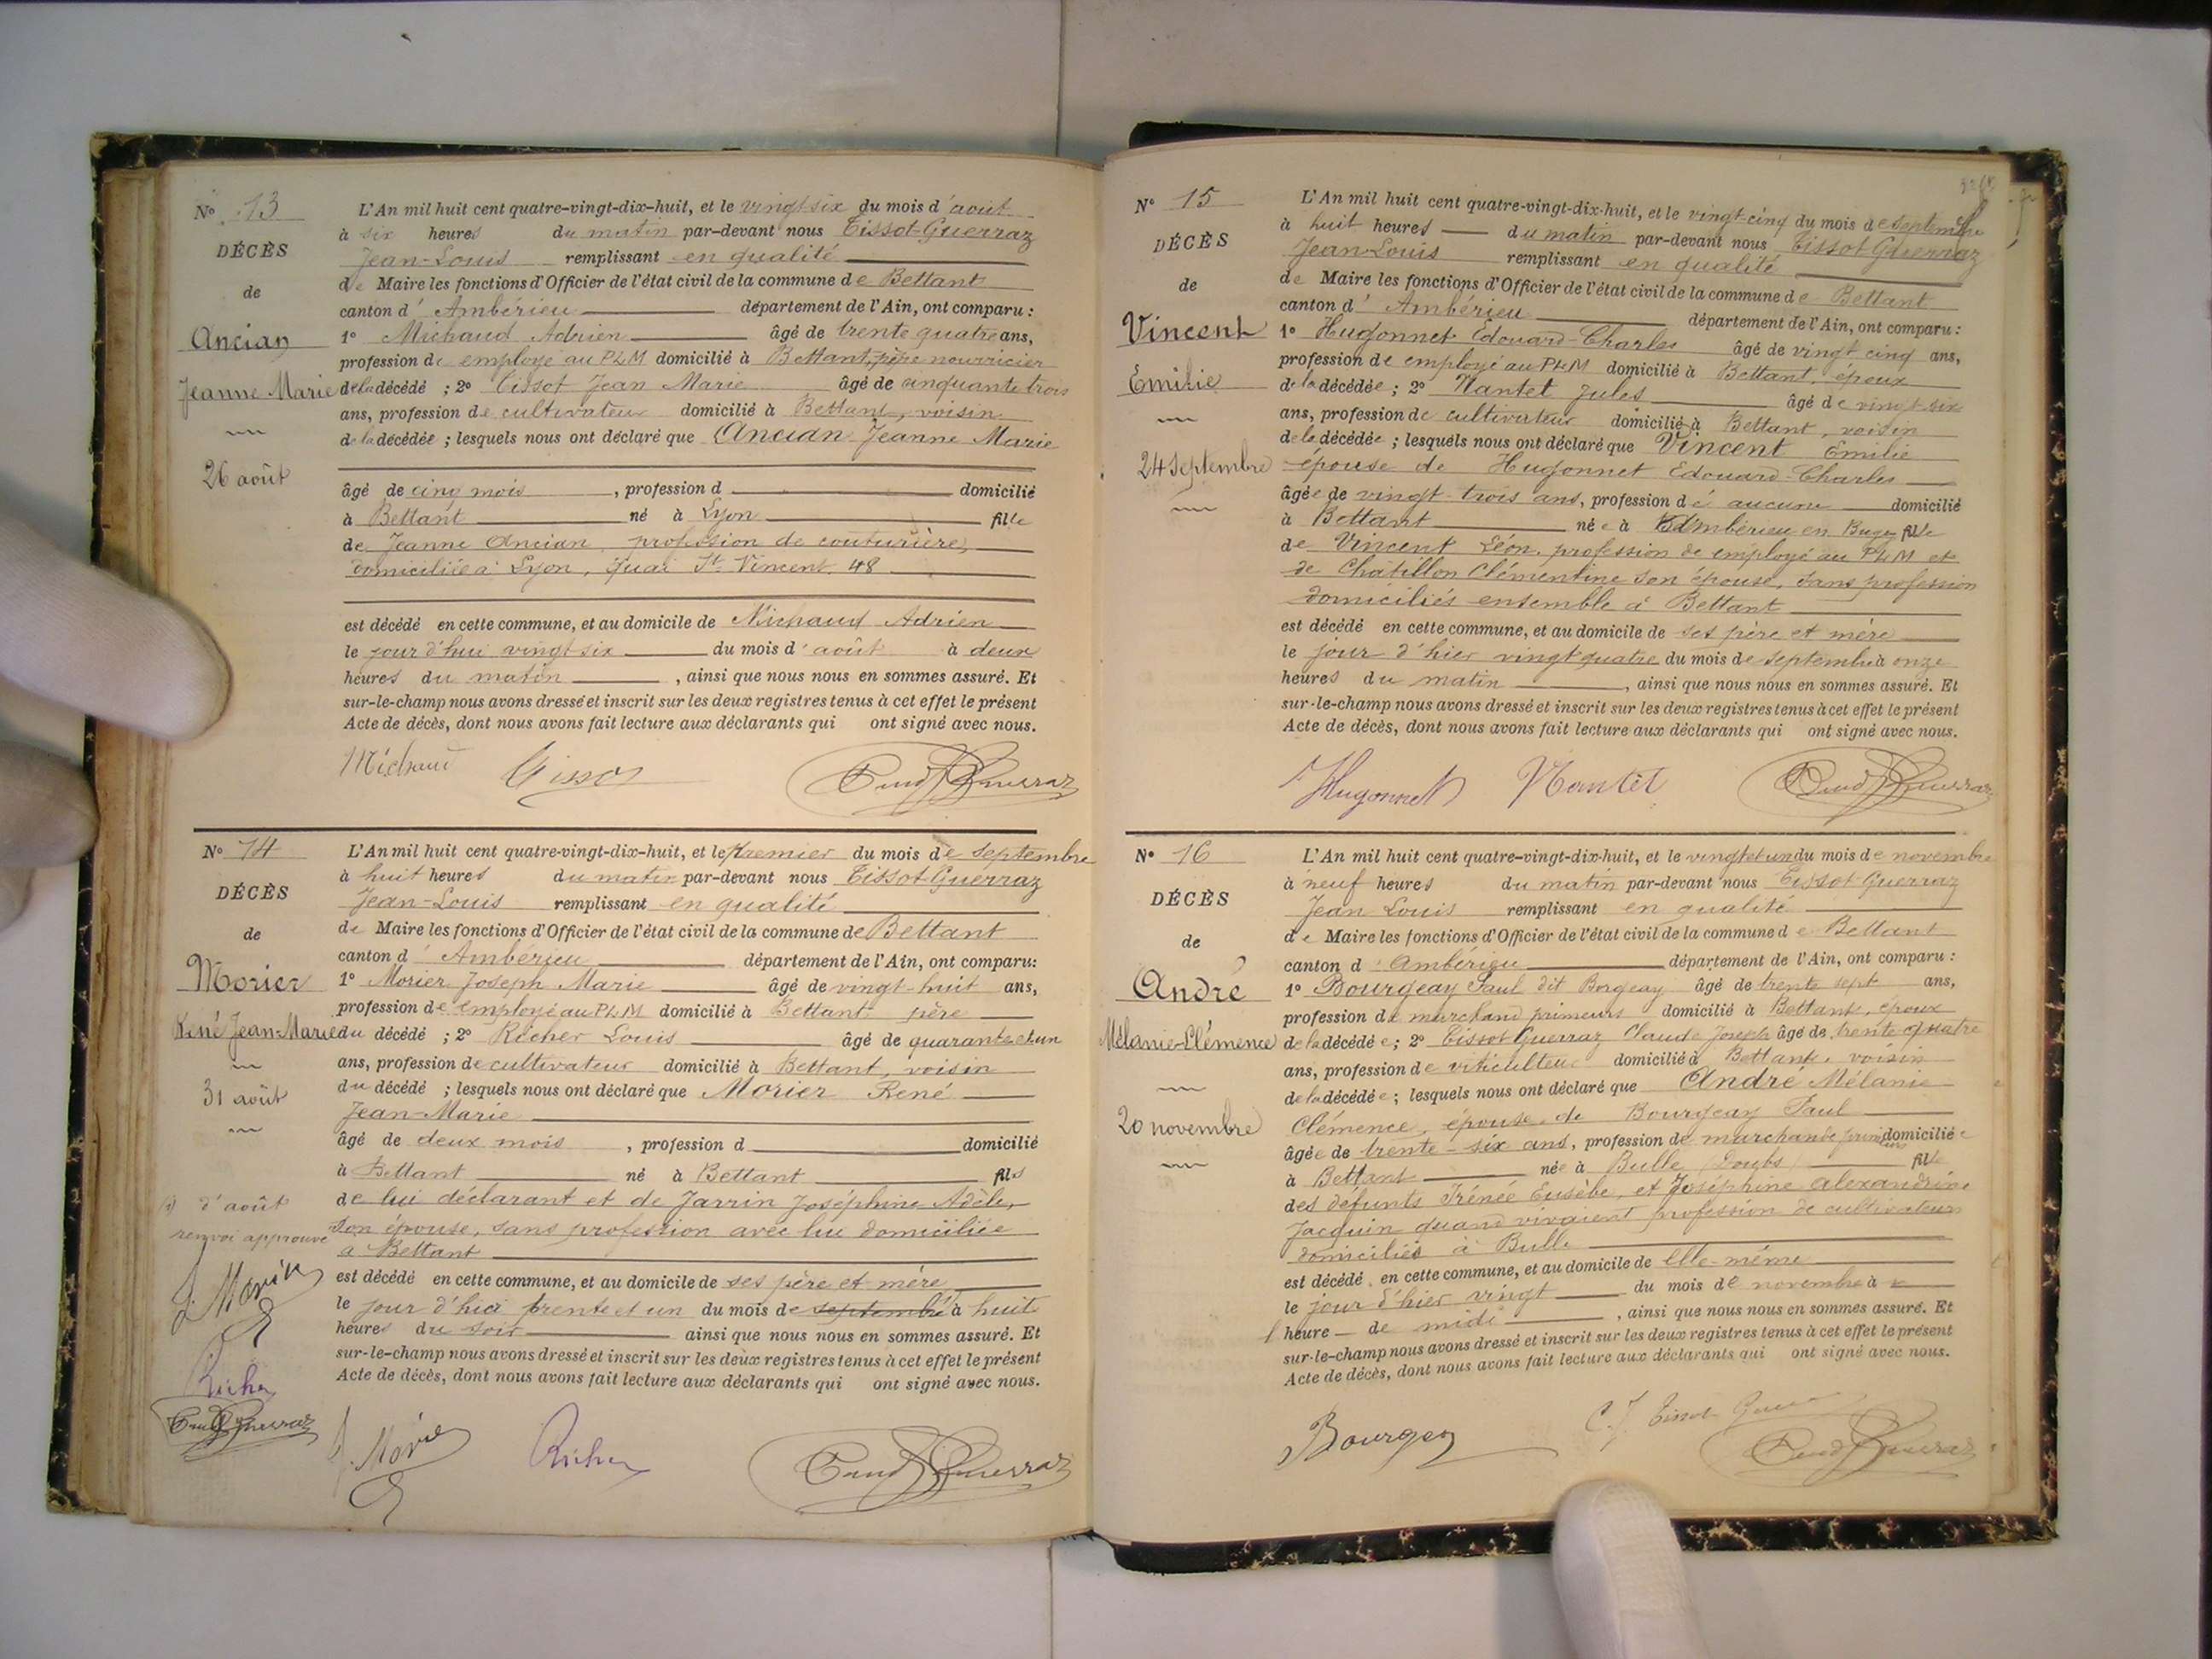 No 13
DÉCÈS
de
Ancian
Jeanne Marie
26 août
L'An mil huit cent quatre-vingt-dix-huit, et le vingt six du mois d'août
à six heures du matin par-devant nous Tissot-Guerraz
Jean-Louis remplissant en qualité
de Maire les fonctions d'Officier de l'état civil de la commune de Bettant
canton d'Ambérieu département de l'Ain, ont comparu :
1o Michaud Adrien âgé de trente quatre ans,
profession de employé au PLM domicilié à Bettant, père nourricier
de la décédé ; 2o Tissot Jean Marie âgé de cinquante trois
ans, profession de cultivateur domicilié à Bettant, voisin
de la décédée ; lesquels nous ont déclaré que Ancian Jeanne Marie
âgé de cinq mois , profession d domicilié
à Bettant né à Lyon fille
de Jeanne Ancian, profession de couturière,
domiciliée à Lyon, quai St Vincent, 48
est décédé en cette commune, et au domicile de Michaud Adrien
le jour d'hui vingt six du mois d'août à deux
heures du matin , ainsi que nous nous en sommes assuré. Et
sur-le-champ nous avons dressé et inscrit sur les deux registres tenus à cet effet le présent
Acte de décès, dont nous avons fait lecture aux déclarants qui ont signé avec nous.
Michaud Tissot
No 14
DÉCÈS
de
Morier
René Jean-Marie
31 août
(1) d'août
renvoi approuvé
J. Morier
Richer
L'An mil huit cent quatre-vingt-dix-huit, et le premier du mois de septembre
à huit heures du matin par-devant nous Tissot-Guerraz
Jean-Louis remplissant en qualité
de Maire les fonctions d'Officier de l'état civil de la commune de Bettant
canton d'Ambérieu département de l'Ain, ont comparu:
1o Morier Joseph Marie âgé de vingt-huit ans,
profession de employé au PLM domicilié à Bettant père
du décédé ; 2o Richer Louis âgé de quarante et un
ans, profession de cultivateur domicilié à Bettant, voisin
du décédé ; lesquels nous ont déclaré que Morier René
Jean-Marie
âgé de deux mois , profession d domicilié
à Bettant né à Bettant fils
de lui déclarant et de Jarrin Joséphine Adèle,
son épouse, sans profession avec lui domiciliée
à Bettant
est décédé en cette commune, et au domicile de ses père et mère
le jour d'hier trente et un du mois de septembre à huit
heures du soir ainsi que nous nous en sommes assuré. Et
sur-le-champ nous avons dressé et inscrit sur les deux registres tenus à cet effet le présent
Acte de décès, dont nous avons fait lecture aux déclarants qui ont signé avec nous.
J. Morier Richer
No 15
DÉCÈS
de
Vincent
Émilie
24 septembre
L'An mil huit cent quatre-vingt-dix-huit, et le vingt-cinq du mois de septembre
à huit heures du matin par-devant nous Tissot Guerraz
Jean-Louis remplissant en qualité
de Maire les fonctions d'Officier de l'état civil de la commune de Bettant
canton d'Ambérieu département de l'Ain, ont comparu :
1o Hugonnet Edouard-Charles âgé de vingt cinq ans,
profession de employé au PLM domicilié à Bettant, époux
de la décédée ; 2o Nantet Jules âgé de vingt-six
ans, profession de cultivateur domicilié à Bettant, voisin
de la décédée ; lesquels nous ont déclaré que Vincent Émilie
épouse de Hugonnet Edouard-Charles
âgée de vingt-trois ans, profession de aucune domicilié
à Bettant née à Ambérieu en Bugey fille
de Vincent Léon, profession de employé au PLM et
de Châtillon Clémentine son épouse, sans profession
domiciliés ensemble à Bettant
est décédé en cette commune, et au domicile de ses père et mère
le jour d'hier vingt quatre du mois de septembre à onze
heures du matin , ainsi que nous nous en sommes assuré. Et
sur-le-champ nous avons dressé et inscrit sur les deux registres tenus à cet effet le présent
Acte de décès, dont nous avons fait lecture aux déclarants qui ont signé avec nous.
Hugonnet Nantet
No 16
DÉCÈS
de
André
Mélanie-Clémence
20 novembre
L'An mil huit cent quatre-vingt-dix-huit, et le vingt et un du mois de novembre
à neuf heures du matin par-devant nous Tissot Guerraz
Jean Louis remplissant en qualité
de Maire les fonctions d'Officier de l'état civil de la commune de Bettant
canton d'Ambérieu département de l'Ain, ont comparu :
1o Bourgeay Paul dit Borgeay âgé de trente sept ans,
profession de marchand primeurs domicilié à Bettant, époux
de la décédée ; 2o Tissot Guerraz Claude Joseph âgé de trente quatre
ans, profession de viticulteur domicilié à Bettant, voisin
de la décédée ; lesquels nous ont déclaré que André Mélanie
Clémence, épouse de Bourgeay Paul
âgée de trente-six ans, profession de marchande primeurs domiciliée
à Bettant née à Bulle (Doubs) fille
des défunts Irénée Eusèbe, et Joséphine Alexandrine
Jacquin quand vivaient profession de cultivateurs
domiciliés à Bulle
est décédé en cette commune, et au domicile de elle-même
le jour d'hier vingt du mois de novembre à
heure de midi , ainsi que nous nous en sommes assuré. Et
sur-le-champ nous avons dressé et inscrit sur les deux registres tenus à cet effet le présent
Acte de décès, dont nous avons fait lecture aux déclarants qui ont signé avec nous.
Bourgeay C. J. Tissot